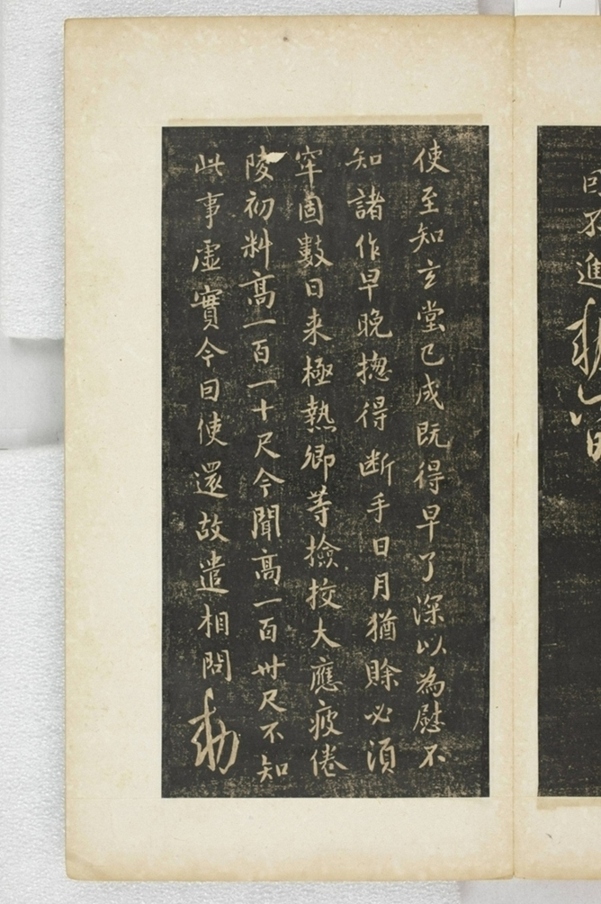 回不進勅
使至知玄堂已成既得早了深以為慰不
知諸作早晚揔得断手日月猶賒必須
牢固數日来極熱卿等撿挍大應疲倦
陵初料高一百一十尺今聞高一百卅尺不知
此事虛實今日使還故遣相問
勅